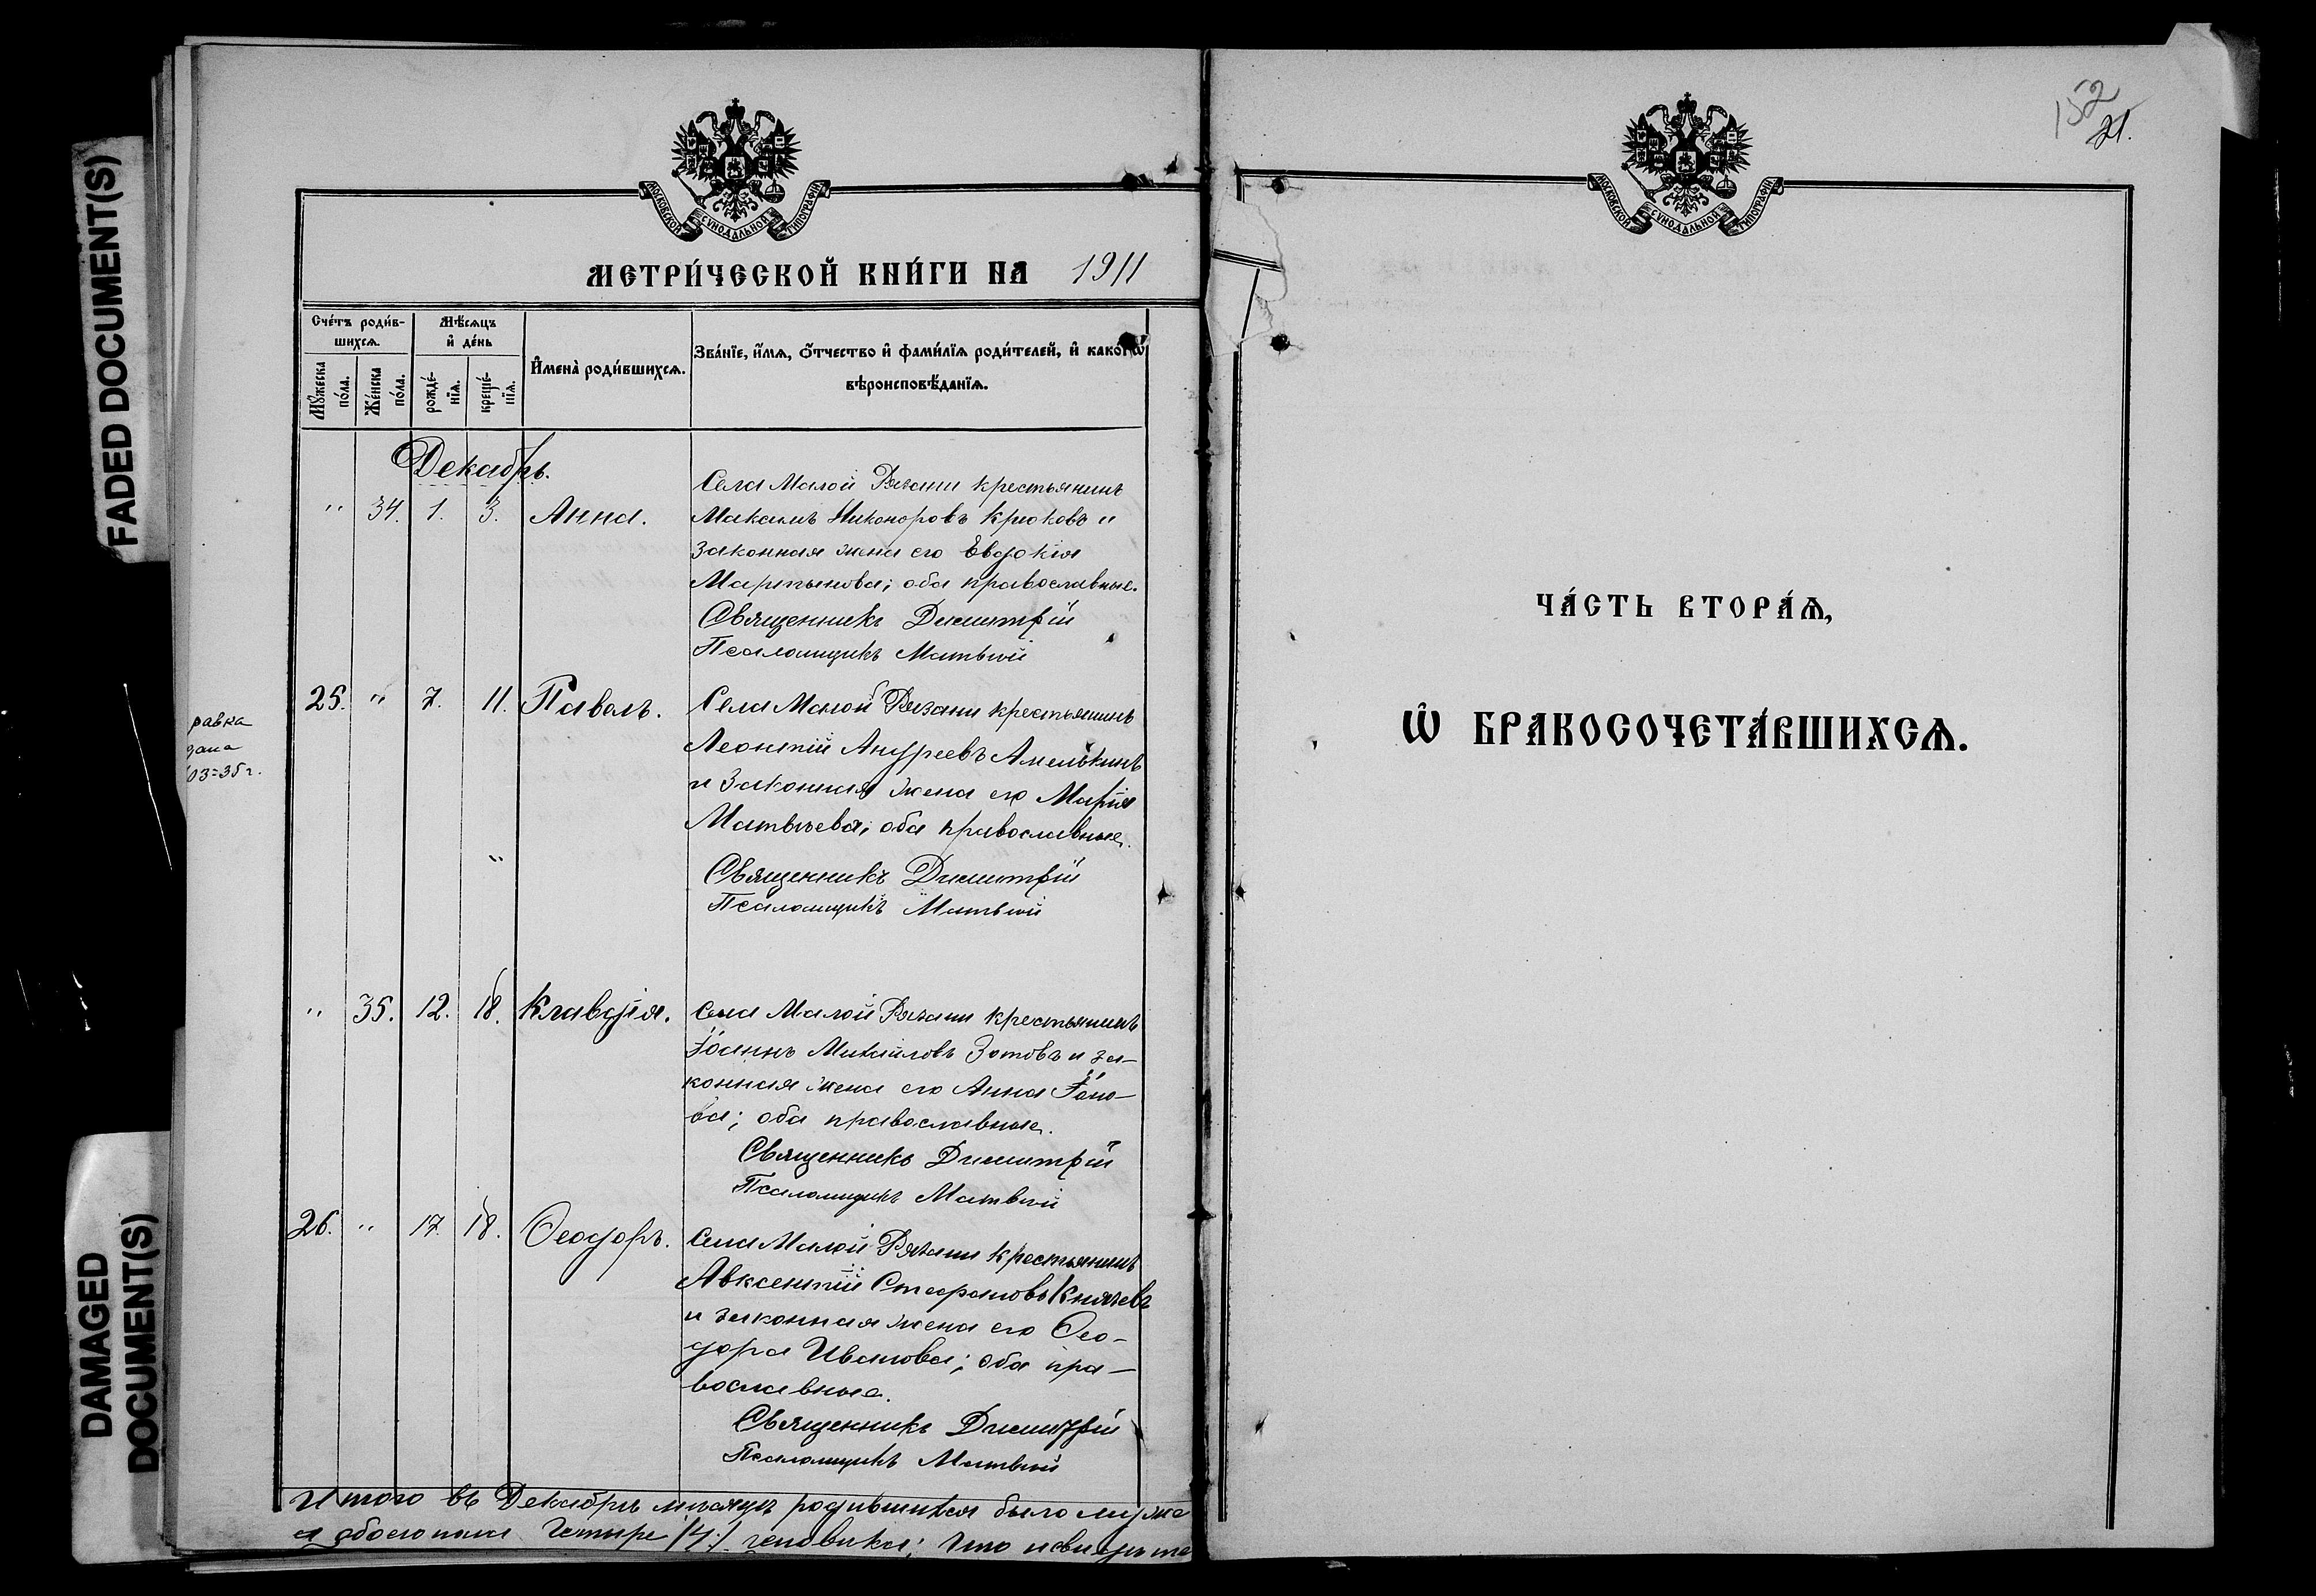 FADED DOCUMENT(S)
DAMAGED
DOCUMENT(S)
МОСКОВСКОЙ СѴНОДАЛЬНОЙ ТИПОГРАФІИ
МЕТРИ́ЧЕСКОЙ КНИ́ГИ НА 1911
Сче́тъ роди́в-
шихсѧ.
Мꙋ́жеска по́ла.
Же́нска по́ла.
Мѣ́сѧцъ
и҆ де́нь
рожде́-нїѧ.
креще́-нїѧ.
И҆мена̀ роди́вшихсѧ.
Зва́нїе, и҆́мѧ, ѻ҆́тчество и҆ фами́лїѧ роди́телей, и҆ како́гѡ
вѣроисповѣ́данїѧ.
Декабрь.
" 34. 1. 3. Анна.
Села Малой Рязани крестьянинъ
Максимъ Никоноровъ Крюковъ и
законная жена его Евдокія
Мартынова; оба православные.
Священникъ Димитрій
Псаломщикъ Матвѣй
равка
дана
03=35 г.
25. " 7. 11. Павелъ.
Села Малой Рязани крестьянинъ
Леонтій Андреевъ Амелькинъ
и законная жена его Марія
Матвѣева; оба православные.
Священникъ Димитрій
Псаломщикъ Матвѣй
" 35. 12. 18. Клавдія.
Села Малой Рязани крестьянинъ
Іоаннъ Михайловъ Зотовъ и за-
конная жена его Анна
ва; оба православные.
Священникъ Димитрій
Псаломщикъ Матвѣй
26. " 17. 18. Ѳеодоръ.
Села Малой Рязани крестьянинъ
Авксентій Стефановъ Князевъ
и законная жена его Ѳео-
дора Иванова; оба пра-
вославные.
Священникъ Димитрій
Псаломщикъ Матвѣй
Итого въ Декабрѣ мѣсяцѣ родившихся было муже
а обоего пола четыре /4:/ человѣка; что и свидѣте
152
21.
МОСКОВСКОЙ СѴНОДАЛЬНОЙ ТИПОГРАФІИ
ЧА́СТЬ ВТОРА́Ѧ,
Ѡ҆ БРАКОСОЧЕТА́ВШИХСѦ.